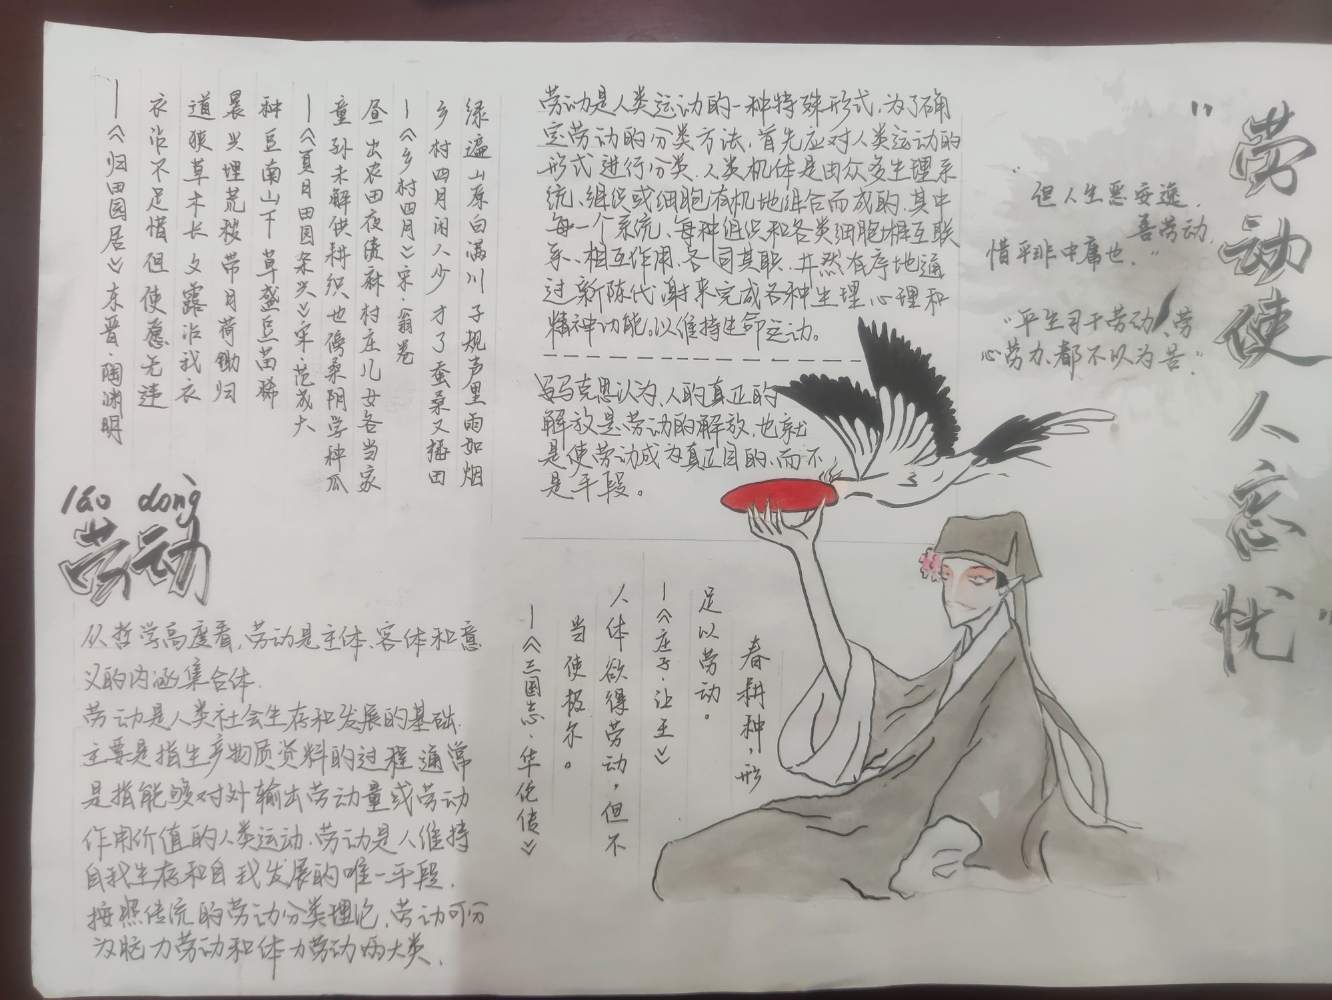 "劳动使人忘忧"
"但人生恶安逸,
善劳动,
惜乎非中庸也."
"平生习于劳动,劳
心劳力,都不以为苦."
劳动是人类运动的一种特殊形式,为了确
定劳动的分类方法,首先应对人类运动的
形式进行分类.人类机体是由众多生理系
统、组织或细胞有机地组合而成的.其中
每一个系统、每种组织和各类细胞相互联
系、相互作用、各司其职、井然有序地通
过新陈代谢来完成各种生理、心理和
精神功能,以维持生命运动。
马克思认为,人的真正的
解放是劳动的解放,也就
是使劳动成为真正目的,而不
是手段。
绿遍山原白满川 子规声里雨如烟
乡村四月闲人少 才了蚕桑又插田
—《乡村四月》宋·翁卷
昼出农田夜绩麻 村庄儿女各当家
童孙未解供耕织 也傍桑阴学种瓜
—《夏日田园杂兴》宋 范成大
种豆南山下 草盛豆苗稀
晨兴埋荒秽 带月荷锄归
道狭草木长 夕露沾我衣
衣沾不足惜 但使愿无违
—《归田园居》东晋·陶渊明
láo dòng
劳动
从哲学高度看,劳动是主体、客体和意
义的内涵集合体.
劳动是人类社会生存和发展的基础.
主要是指生产物质资料的过程,通常
是指能够对外输出劳动量或劳动
作用价值的人类运动,劳动是人维持
自我生存和自我发展的唯一手段.
按照传统的劳动分类理论,劳动可分
为脑力劳动和体力劳动两大类.
春耕种,形
足以劳动。
—《庄子·让王》
人体欲得劳动,但不
当使极尔。
—《三国志·华佗传》